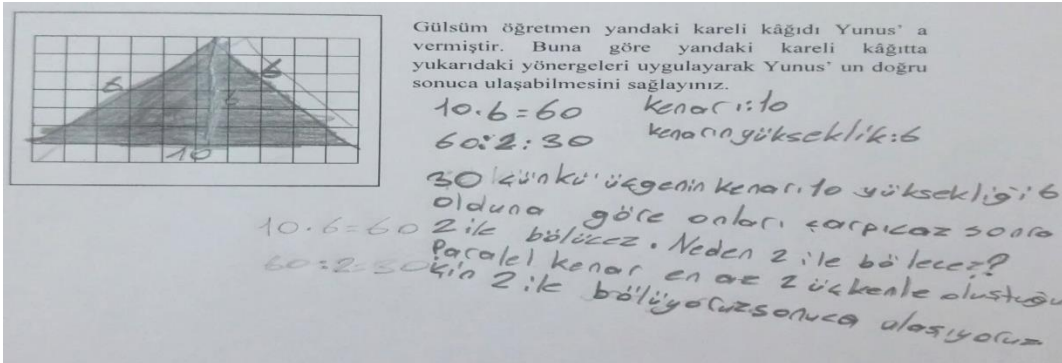 Gülsüm öğretmen yandaki kareli kâğıdı Yunus' a
vermiştir. Buna göre yandaki kareli kâğıtta
yukarıdaki yönergeleri uygulayarak Yunus' un doğru
sonuca ulaşabilmesini sağlayınız.
6
6
6
10
10.6=60 kenarı:10
60:2:30 kenarın yükseklik:6
30 çünkü üçgenin kenarı 10 yüksekliği 6
olduna göre onları çarpıcaz sonra
10.6=60 2 ile bölücez. Neden 2 ile bölecez?
60:2=30 Paralel kenar en az 2 üçkenle oluştuğu
için 2 ile bölüyoruz sonuca ulaşıyoruz